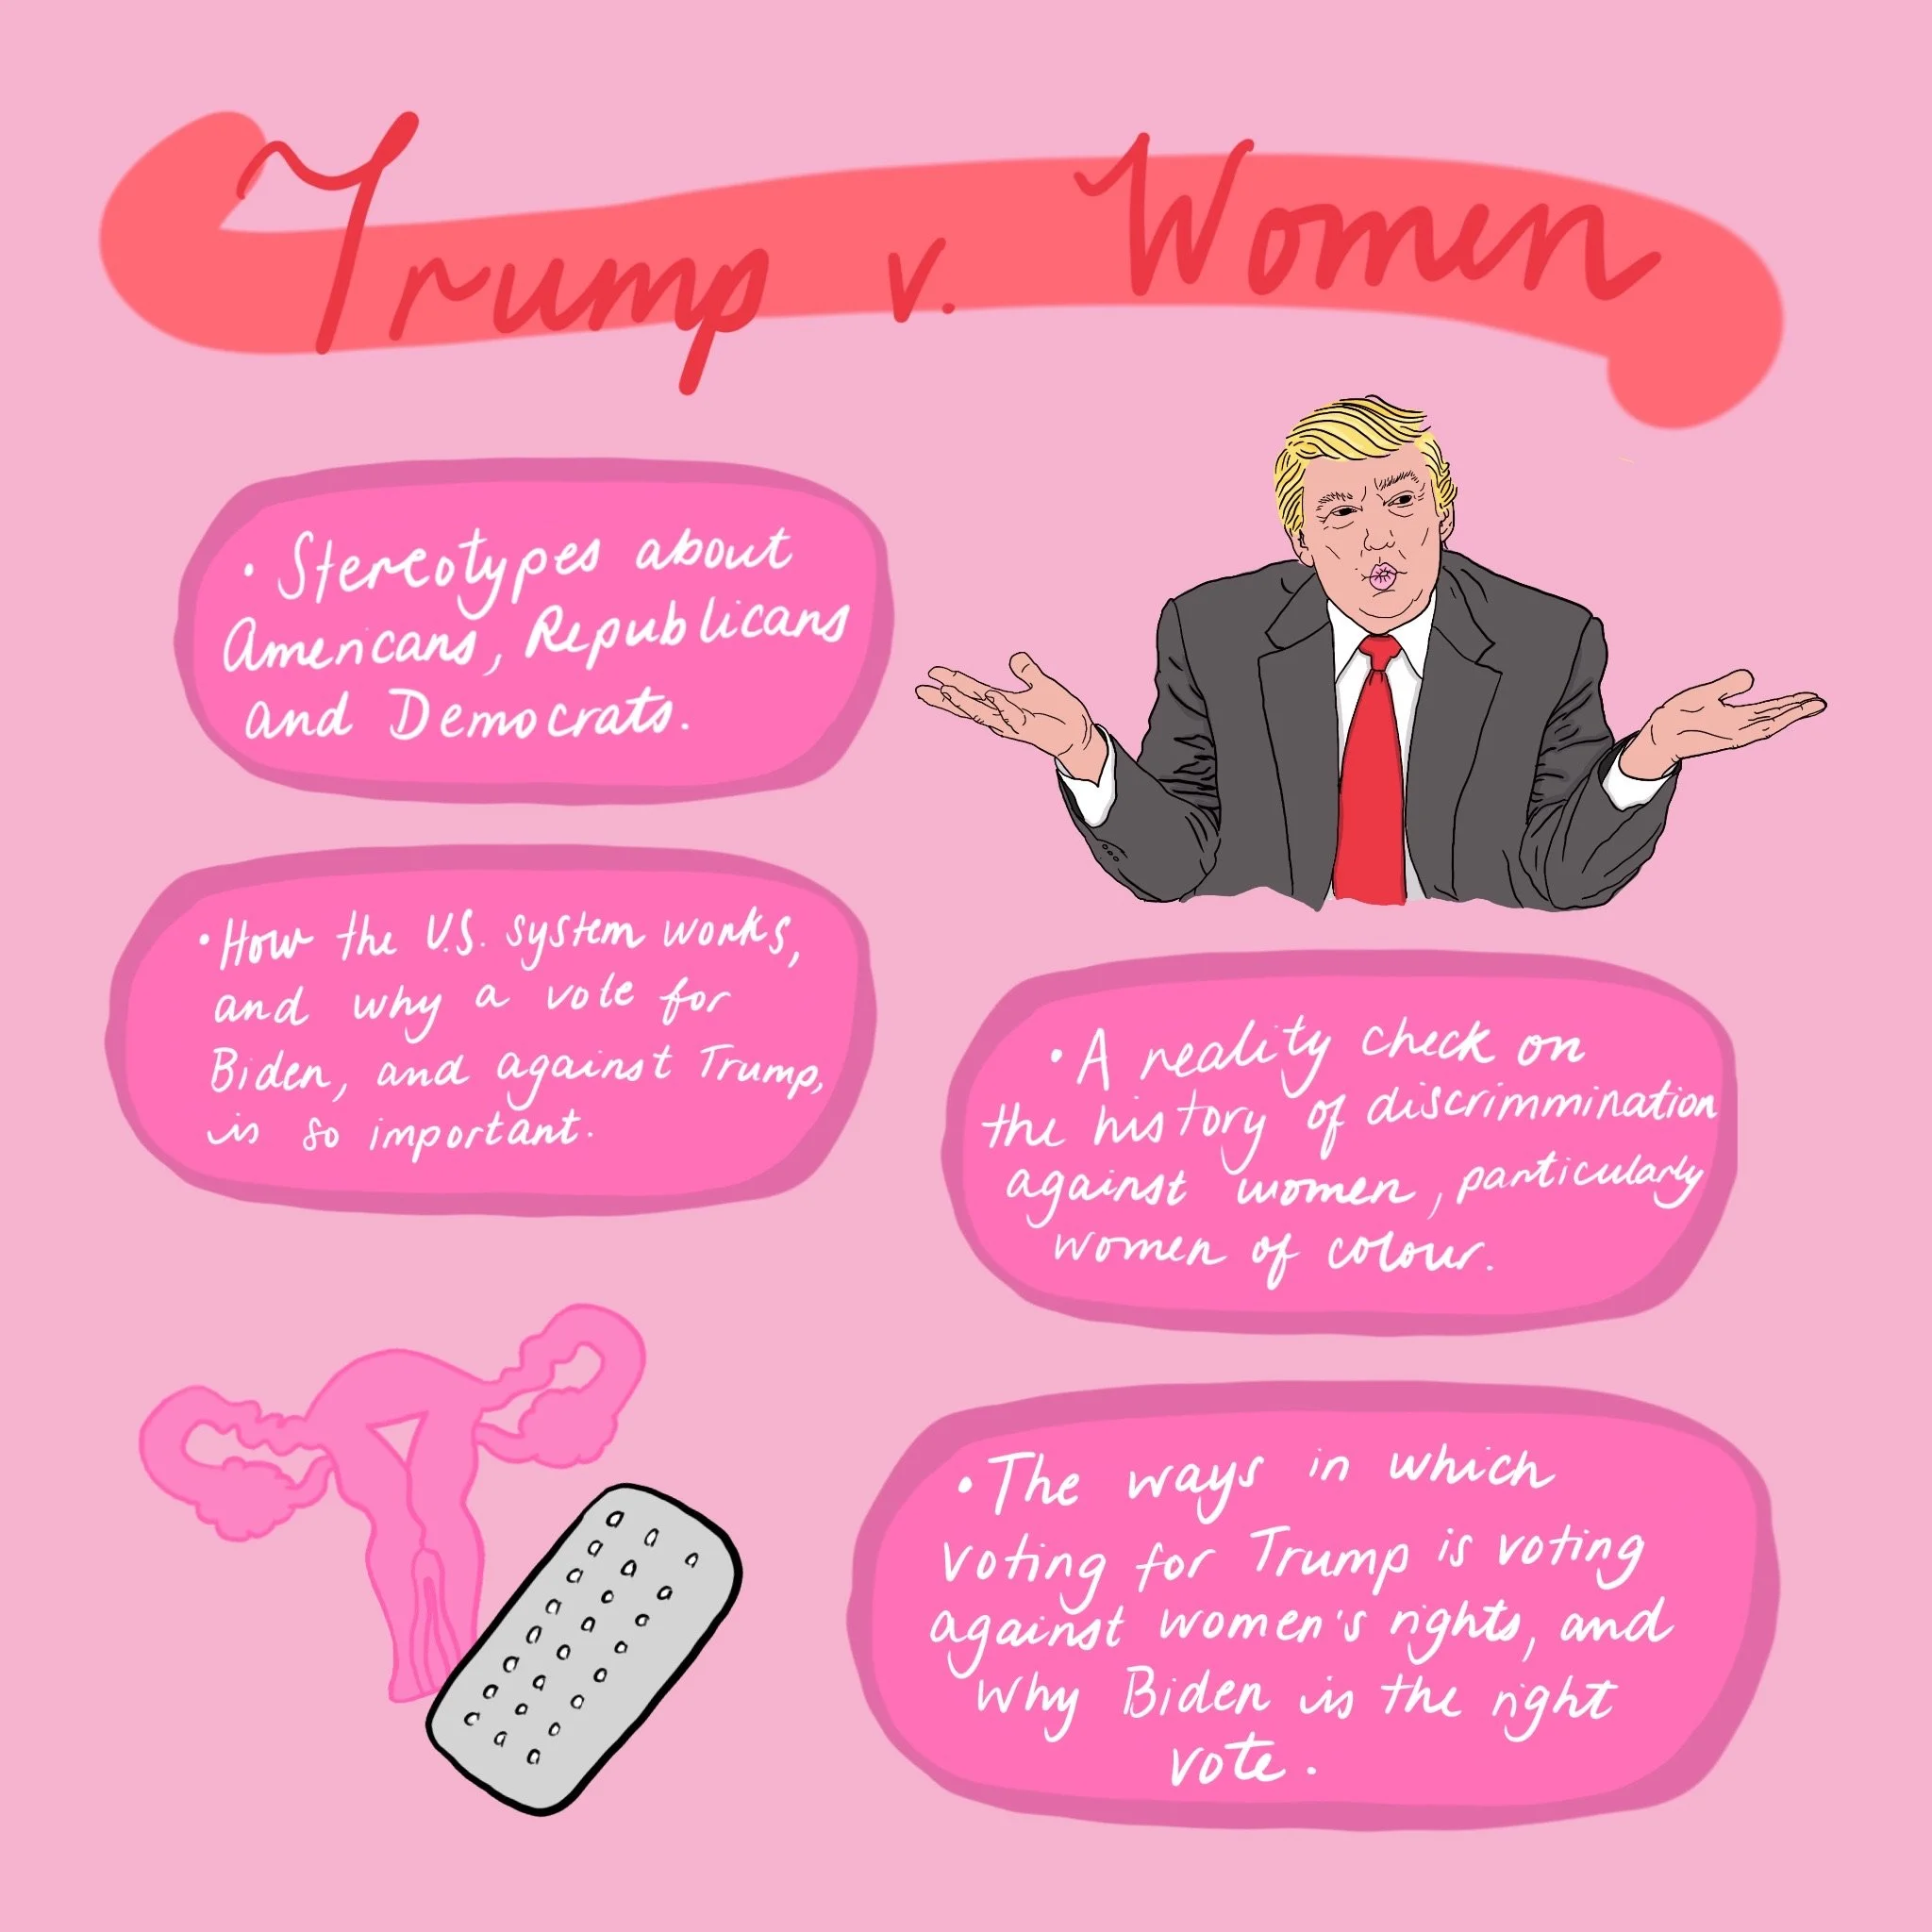 Trump v. Women
• Stereotypes about
Americans, Republicans
and Democrats.
• How the U.S. system works,
and why a vote for
Biden, and against Trump,
is so important.
• A reality check on
the history of discrimmination
against women, particularly
women of colour.
• The ways in which
voting for Trump is voting
against women's rights, and
why Biden is the right
vote.